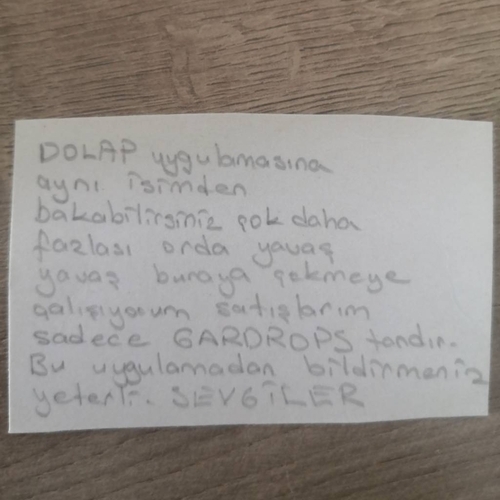 DOLAP uygulamasına
aynı isimden
bakabilirsiniz çok daha
fazlası orda yavaş
yavaş buraya çekmeye
çalışıyorum satışlarım
sadece GARDROPS tandır.
Bu uygulamadan bildirmeniz
yeterli. SEVGİLER